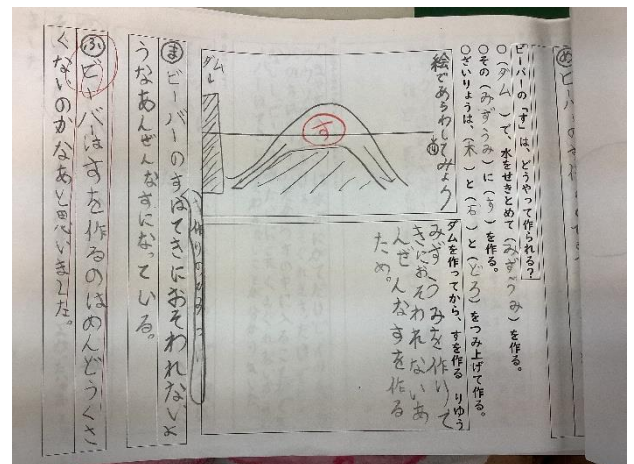 め ビーバーの
ビーバーの「す」は、どうやって作られる？
○（ダム）で、水をせきとめて（みずうみ）を作る。
○その（みずうみ）に（す）を作る。
○ざいりょうは、（木）と（石）と（どろ）をつみ上げて作る。
絵であらわしてみよう
ダム
す
ダムを作ってから、すを作る りゆう
みずうみを作って
きにおそわれないあ
んぜんなすを作る
ため。
ま ビーバーのすはてきにおそわれないよ
うなあんぜんなすになっている。
ふ ビーバーはすを作るのはめんどうくさ
くないのかなあと思いました。